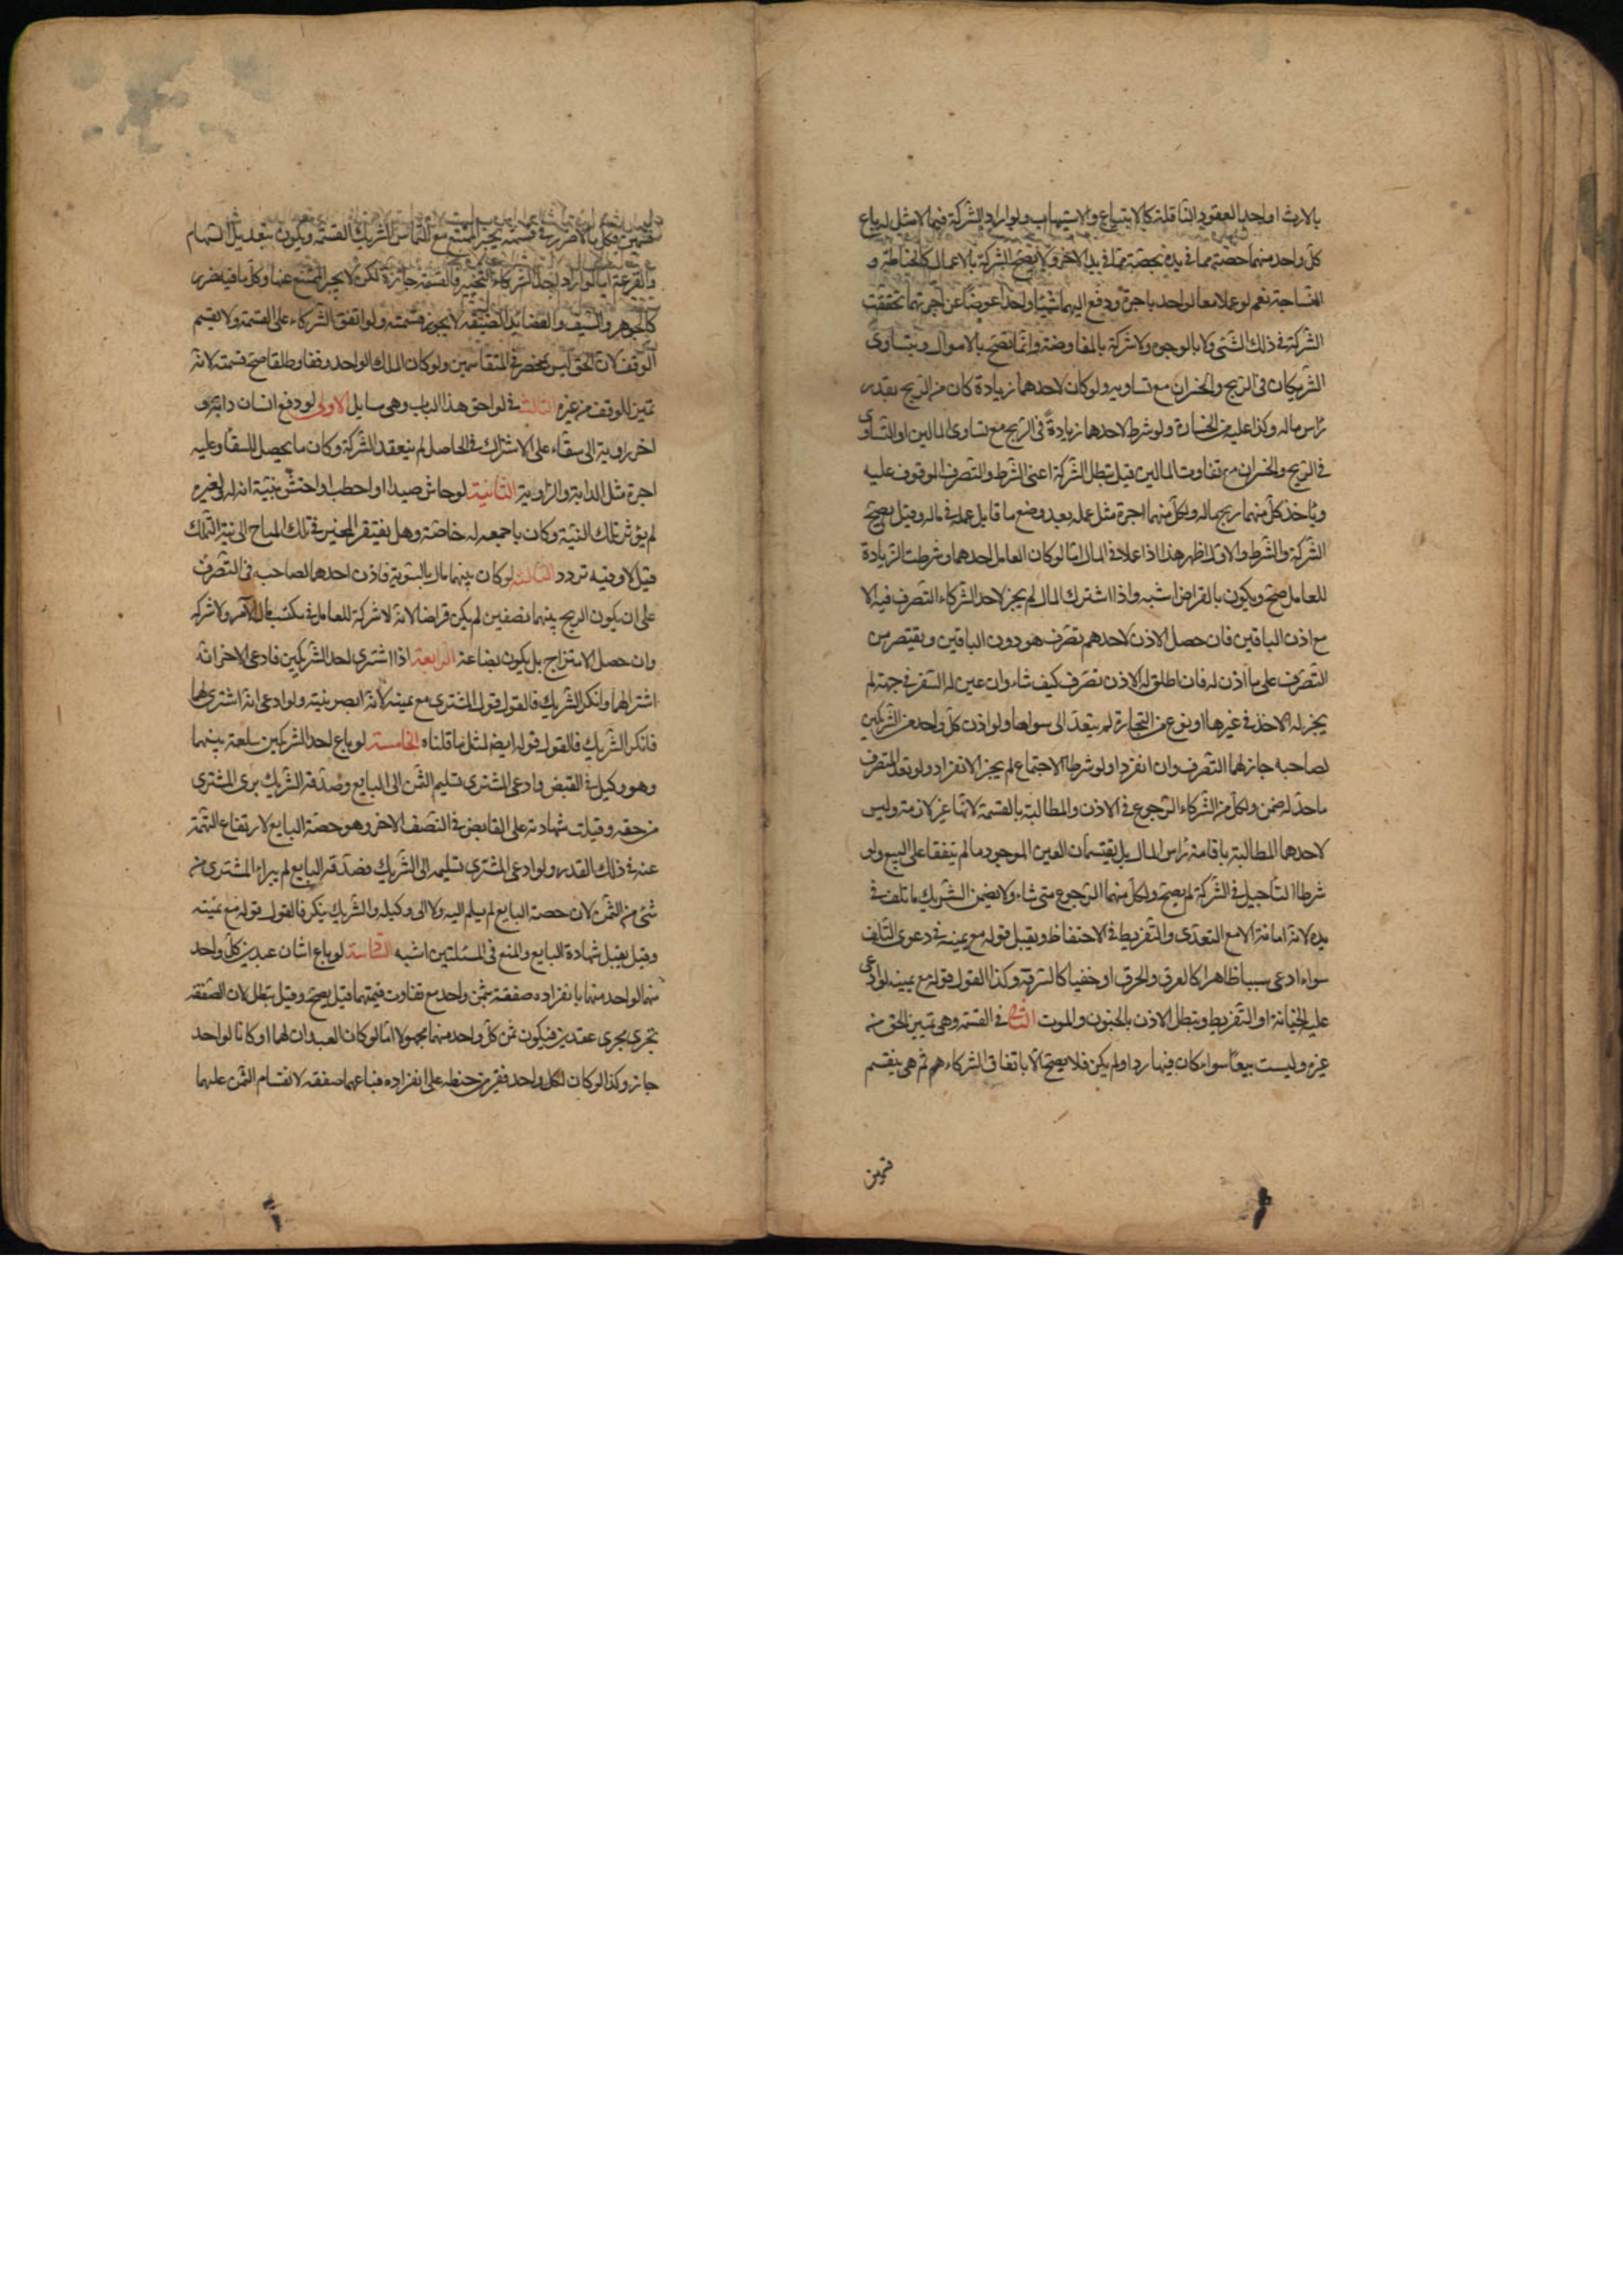 بالارث او احد العقود الناقلة كالابتياع والاستيهاب ولو اراد الشركة فيما لا مثل له باع
كل واحد منهما حصته مما في يده بحصته مما في يد الاخر ولا تصح الشركة بالاعمال كالخياطة و
النساجة نعم لو عملا معا لواحد باجرة ودفع اليهما شيئا واحدا عوضا عن اجرتهما تحققت
الشركة في ذلك الشئ ولا بالوجوه ولا شركة بالمفاوضة وانما تصح بالاموال ويتساوى
الشريكان في الربح والخسران مع تساويه ولو كان لاحدهما زيادة كان من الربح بقدر
رأس ماله وكذا عليه من الخسارة ولو شرط لاحدهما زيادة في الربح مع تساوى المالين او التساوى
في الربح والخسران مع تفاوت المالين قيل تبطل الشركة اعنى الشرط والتصرف الموقوف عليه
وياخذ كل منهما ربح ماله ولكل منهما اجرة مثل عمله بعد وضع ما قابل عمله في ماله وقيل يصح
الشركة والشرط والاول اظهر هذا اذا عملا في المال اما لو كان العامل احدهما وشرطت الزيادة
للعامل صح ويكون بالقراض اشبه واذا اشترك المال لم يجز لاحد الشركاء التصرف فيه الا
مع اذن الباقين فان حصل الاذن لاحدهم تصرف هو دون الباقين ويقتصر من
التصرف على ما اذن له فان اطلق له الاذن تصرف كيف شاء وان عين له السفر في جهة لم
يجز له الاخذ في غيرها او نوع من التجارة لم يتعد الى سواها ولو اذن كل واحد من الشريكين
لصاحبه جاز لهما التصرف وان انفرد او لو شرطا الاجتماع لم يجز الانفراد ولو تعدى المتصرف
ما حد له ضمن ولكل من الشركاء الرجوع في الاذن والمطالبة بالقسمة لانها غير لازمة وليس
لاحدهما المطالبة باقامة رأس المال بل يقتسمان العين الموجود ما لم يتفقا على البيع ولو
شرطا التأجيل في الشركة لم يصح ولكل منهما الرجوع متى شاء ولا يضمن الشريك ما تلف في
يده لانه امانة الا مع التعدى والتفريط في الاحتفاظ ويقبل قوله مع يمينه في دعوى التلف
سواء ادعى سببا ظاهرا كالغرق والحرق او خفيا كالسرقة وكذا القول قوله مع يمينه لو ادعى
عليه الخيانة او التفريط ويبطل الاذن بالجنون والموت الثانى في القسمة وهي تمييز الحق من
غيره وليست بيعا سواء كان فيها رد او لم يكن فلا يصح الا باتفاق الشركاء هم ثم هي ينقسم
قسمين
قسمين فكل ما لا ضرر في قسمته يجبر الممتنع مع التماس الشريك القسمة ويكون بتعديل السهام
والقرعة اما لو اراد احد الشركاء التخيير فالقسمة جائزة لكن لا يجبر الممتنع عنها وكل ما فيه ضرر
كالجوهر والسيف والعضائد الضيقه لا يجوز قسمته ولو اتفق الشركاء على القسمة ولا يقسم
الوقف لان الحق ليس بمنحصر في المتقاسمين ولو كان الملك الواحد وقفا وطلقا صح قسمته لانه
تميز للوقف من غيره الثالث في لواحق هذا الباب وهي مسايل الاولى لو دفع انسان دابة و
اخر راوية الى سقاء على الاشتراك في الحاصل لم ينعقد الشركة وكان ما يحصل للسقاء وعليه
اجرة مثل الدابة والراوية الثانية لو حاش صيدا او احطب او احتش بنية انه له ولغيره
لم يؤثر تلك النية وكان باجمعه له خاصة وهل يفتقر المحيز في تلك المباح الى نية التملك
قيل لا وفيه تردد الثالثة لو كان بينهما مال بالسوية فاذن احدهما لصاحبه في التصرف
على ان يكون الربح بينهما نصفين لم يكن قراضا لانه لا شركة للعامل في مكسب مال الآمر ولا شركه
وان حصل الامتزاج بل يكون بضاعة الرابعة اذا اشترى احد الشريكين فادعى الاخر انه
اشترى لهما وانكر الشريك فالقول قول المشترى مع يمينه لانه ابصر بنيته ولو ادعى انه اشترى لهما
فانكر الشريك فالقول قوله ايضا لمثل ما قلناه الخامسة لو باع احد الشريكين سلعة بينهما
وهو وكيل في القبض وادعى المشترى تسليم الثمن الى البايع وصدقه الشريك برى المشترى
من حقه وقبلت شهادته على القابض في النصف الاخر وهو حصة البايع لارتفاع التهمة
عنه في ذلك القدر ولو ادعى المشترى تسليمه الى الشريك فصدقه البايع لم يبراء المشترى من
شئ من الثمن لان حصة البايع لم يسلم اليه ولا الى وكيله والشريك ينكر فالقول قوله مع يمينه
وقيل يقبل شهادة البايع والمنع في المسئلتين اشبه السادسة لو باع اثنان عبدين كل واحد
منهما لواحد منهما بانفراده صفقة بثمن واحد مع تفاوت قيمتهما قيل يصح وقيل يبطل لان الصفقه
تجرى مجرى عقدين فيكون ثمن كل واحد منهما مجهولا اما لو كان العبدان لهما او كانا لواحد
جاز وكذا لو كان لكل واحد قفيز من حنطه على انفراده فباعهما صفقه لانقسام الثمن عليهما